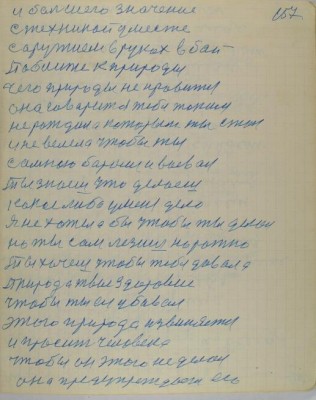 и большего значение 157
с техникой уместе
с аружием в руках в бой
Поближе к природы
чего природы не нравится
она гаварит я тебя таким
не рождила каторым ты стал
и не велела чтобы ты
самною баролся и воевал
Ты знаеш что делаеш
какое либо умееш дело
Я не хотела бы чтобы ты делал
но ты сам лезиш на
Ты хочеш чтобы тебе давала
природа твае здоровие
чтобы ты ея убивал
этого природа извиняется
и просит человека
чтобы он этого не делал
она предупреждала его